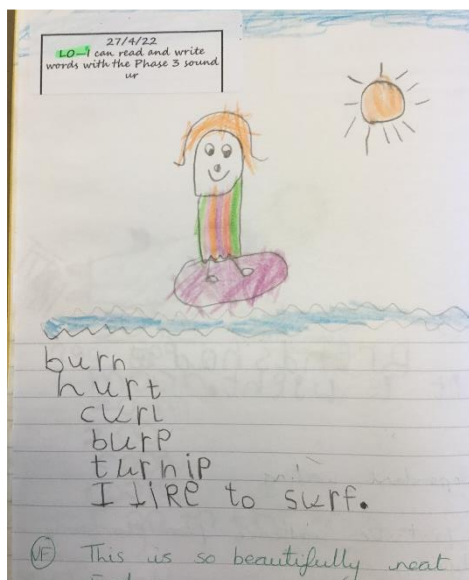 27/4/22
LO–I can read and write
words with the Phase 3 sound
ur
burn
hurt
curl
burp
turnip
I like to surf.
VF This is so beautifully neat